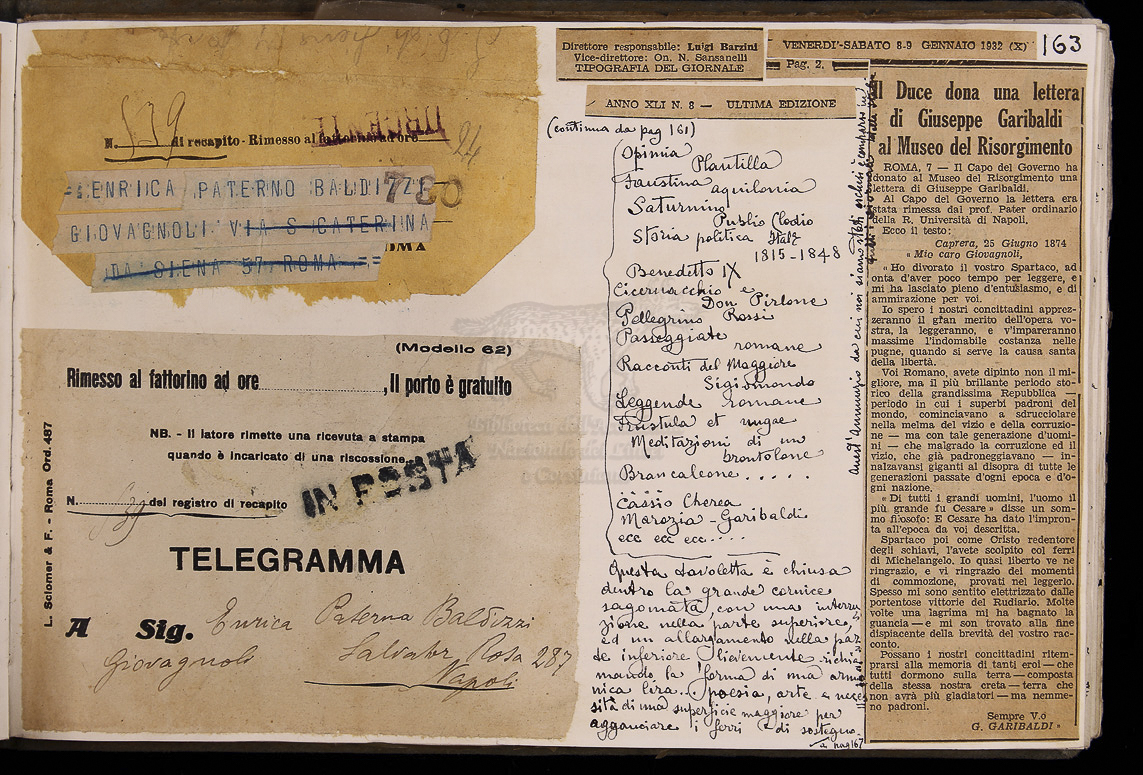 N. 539 di recapito - Rimesso al fattorino ad ore
URGENTE
24
=ENRICA PATERNO BALDIZZI
780
GIOVAGNOLI VIA S CATERINA
ROMA
DA SIENA 57 ROMA ==
(Modello 62)
Rimesso al fattorino ad ore ............ , Il porto è gratuito
NB. - Il latore rimette una ricevuta a stampa
quando è incaricato di una riscossione.
IN POSTA
N. 539 del registro di recapito
L. Sclomer & F. - Roma Ord. 487
TELEGRAMMA
A Sig. Enrica Paterna Baldizzi
Giovagnoli Salvator Rosa 287
Napoli
Direttore responsabile: Luigi Barzini
Vice-direttore: On. N. Sansanelli
TIPOGRAFIA DEL GIORNALE
VENERDI'-SABATO 8-9 GENNAIO 1932 (X)
163
Pag. 2.
ANNO XLI N. 8 — ULTIMA EDIZIONE
(continua da pag 161)
Opimia
Plautilla
Faustina
aquilonia
Saturnino
Publio Clodio
Storia politica Italª
1815-1848
Benedetto IX
Cicernacchio e
Don Pirlone
Pellegrino Rossi
Passeggiate
romane
Racconti del Maggiore
Sigismondo
Leggende romane
Frustula et nugae
Meditazioni di un
brontolone
Brancaleone . . . . .
Cassio Cherea
Marozia - Garibaldi
ecc ecc ecc . . . .
Questa tavoletta è chiusa
dentro la grande cornice
sagomata, con una interru
zione nella parte superiore,
ed un allargamento nella par
te inferiore lievemente richia
mando la forma di una armo
nica lira. (poesia, arte e neces
sità di una superficie maggiore per
agganciare i ferri di sostegno.
a pag 167
Il Duce dona una lettera
di Giuseppe Garibaldi
al Museo del Risorgimento
ROMA, 7 — Il Capo del Governo ha
donato al Museo del Risorgimento una
lettera di Giuseppe Garibaldi.
Al Capo del Governo la lettera era
stata rimessa dal prof. Pater ordinario
della R. Università di Napoli.
Ecco il testo:
Caprera, 25 Giugno 1874
« Mio caro Giovagnoli,
« Ho divorato il vostro Spartaco, ad
onta d'aver poco tempo per leggere, e
mi ha lasciato pieno d'entusiasmo, e di
ammirazione per voi.
Io spero i nostri concittadini apprez-
zeranno il gran merito dell'opera vo-
stra, la leggeranno, e v'impareranno
massime l'indomabile costanza nelle
pugne, quando si serve la causa santa
della libertà.
Voi Romano, avete dipinto non il mi-
gliore, ma il più brillante periodo sto-
rico della grandissima Repubblica —
periodo in cui i superbi padroni del
mondo, cominciavano a sdrucciolare
nella melma del vizio e della corruzio-
ne — ma con tale generazione d'uomi-
ni — che malgrado la corruzione ed il
vizio, che già padroneggiavano — in-
nalzavansi giganti al disopra di tutte le
generazioni passate d'ogni epoca e d'o-
gni nazione.
« Di tutti i grandi uomini, l'uomo il
più grande fu Cesare » disse un som-
mo filosofo: E Cesare ha dato l'impron-
ta all'epoca da voi descritta.
Spartaco poi come Cristo redentore
degli schiavi, l'avete scolpito col ferri
di Michelangelo. Io quasi liberto ve ne
ringrazio, e vi ringrazio dei momenti
di commozione, provati nel leggerlo.
Spesso mi sono sentito elettrizzato dalle
portentose vittorie del Rudiario. Molte
volte una lagrima mi ha bagnato la
guancia — e mi son trovato alla fine
dispiacente della brevità del vostro rac-
conto.
Possano i nostri concittadini ritem-
prarsi alla memoria di tanti eroi — che
tutti dormono sulla terra — composta
della stessa nostra creta — terra che
non avrà più gladiatori — ma nemme-
no padroni.
Sempre V.o
G. GARIBALDI »